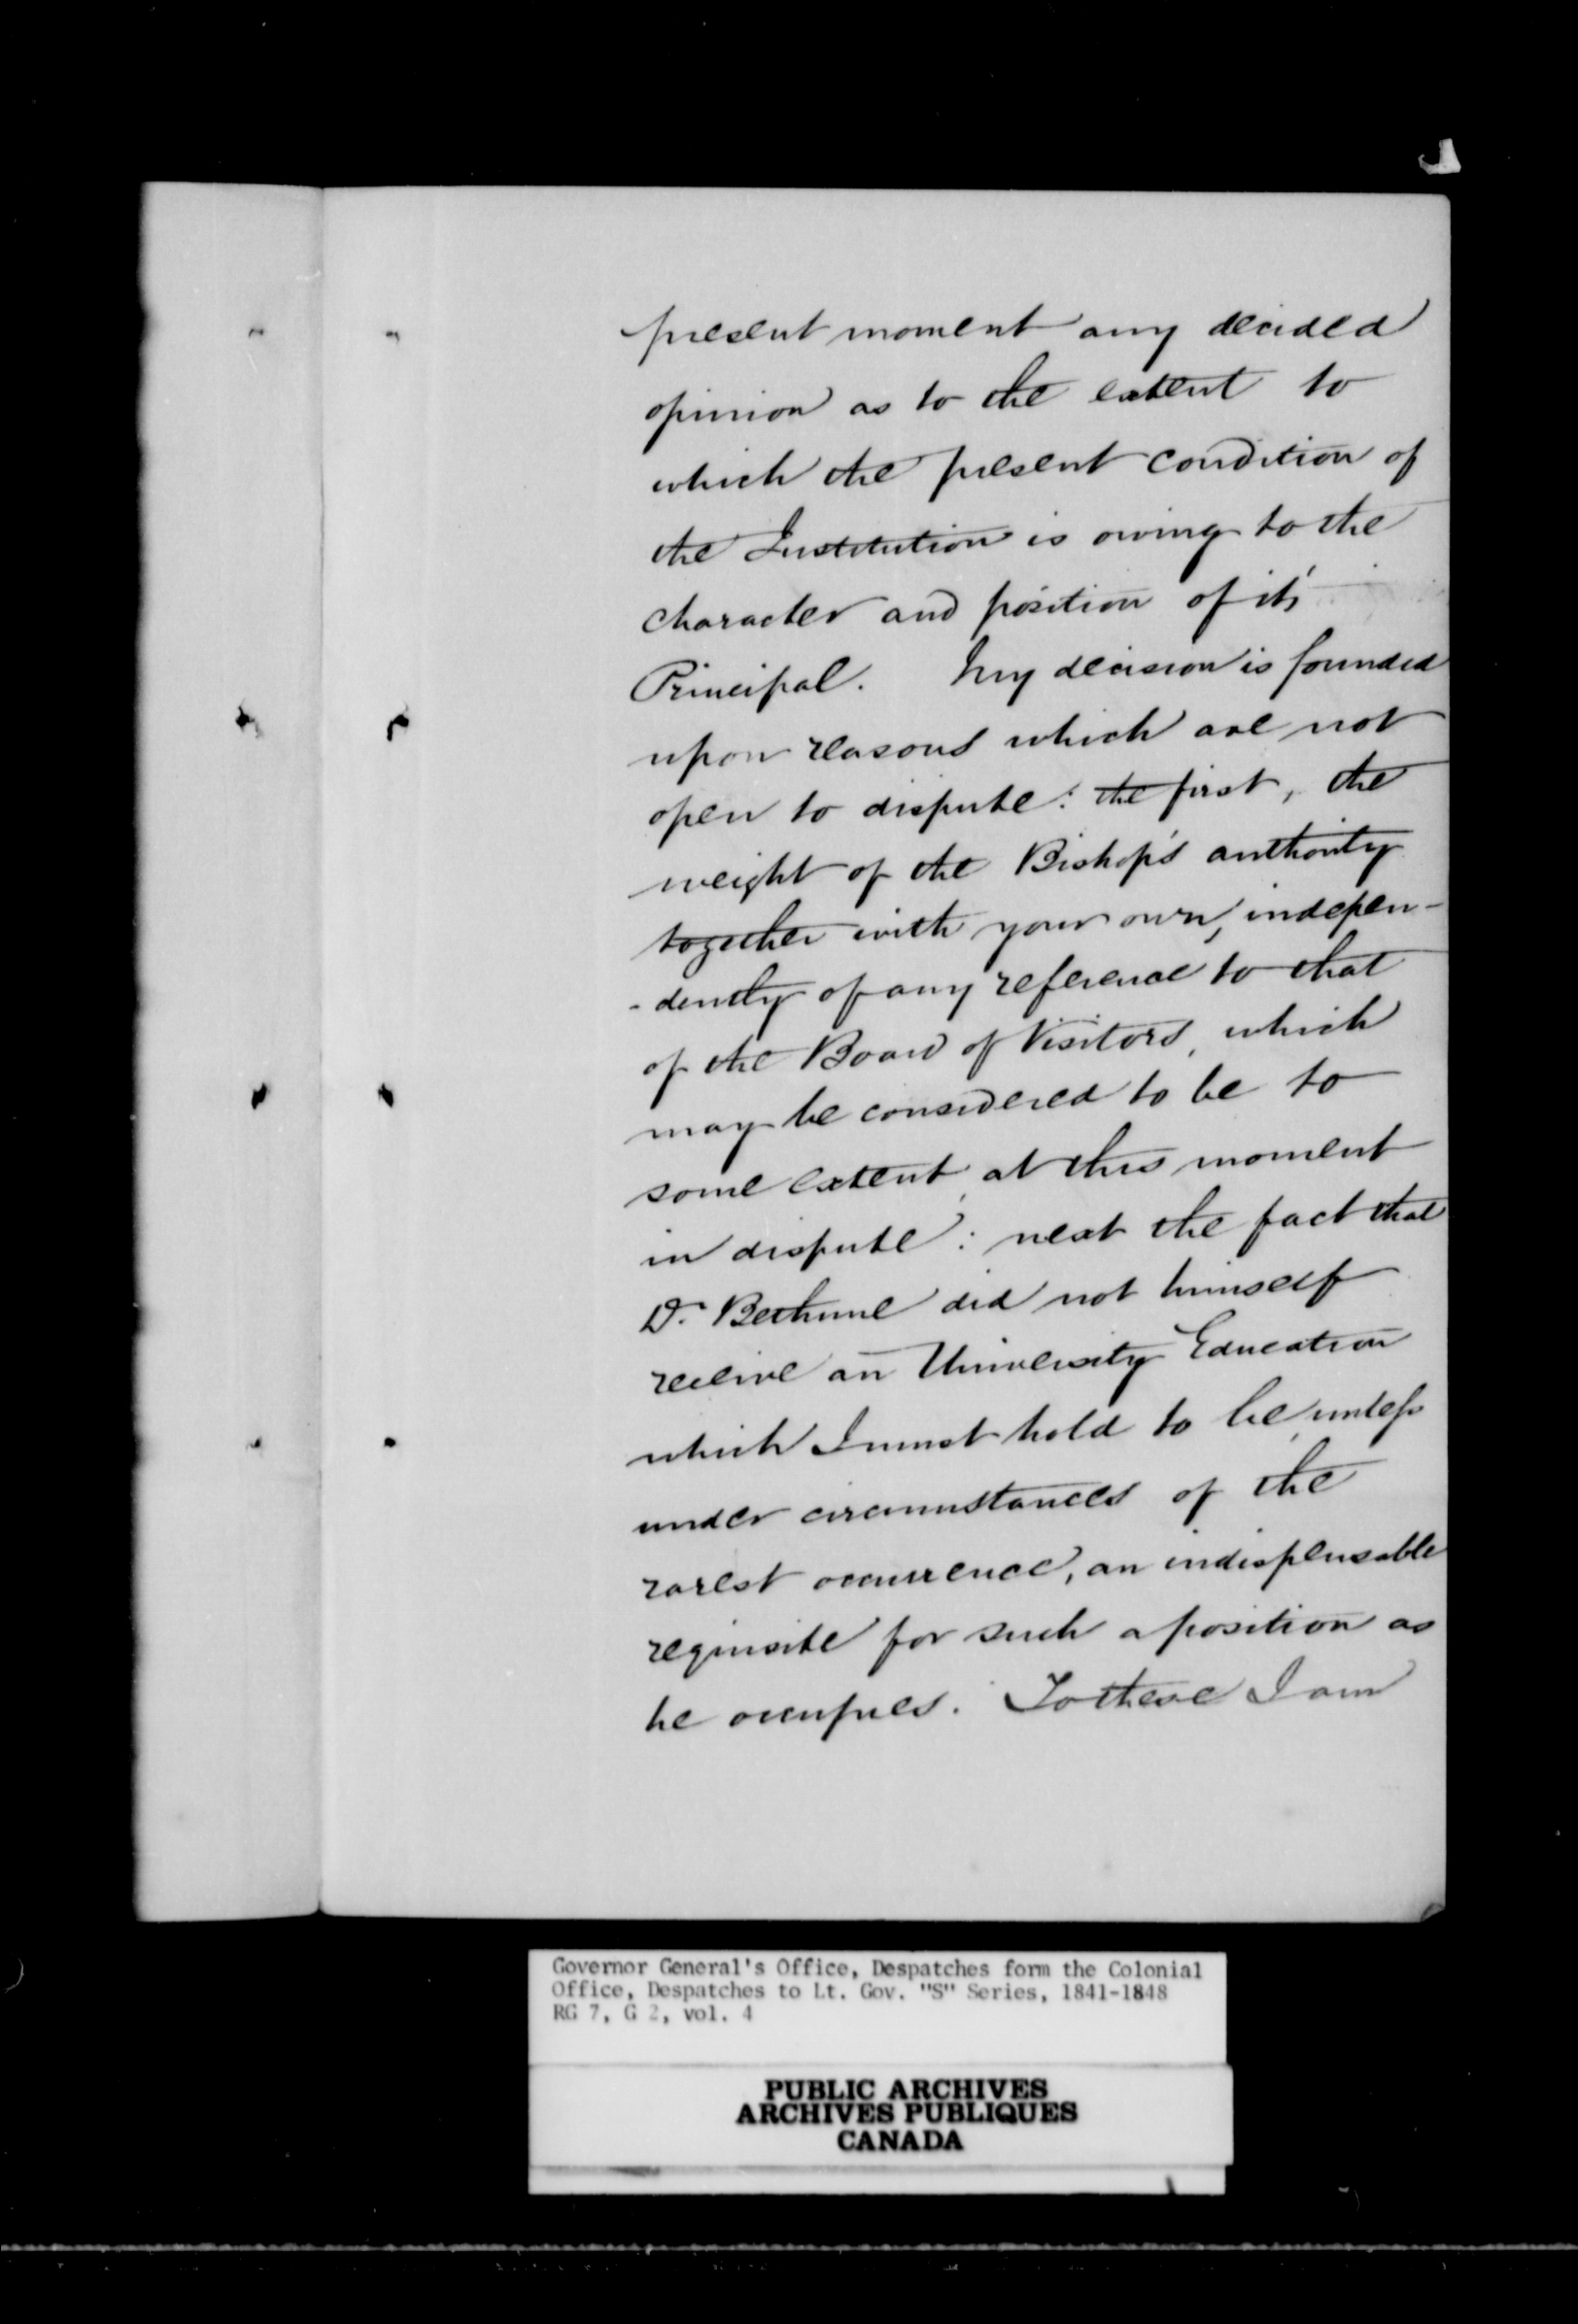 present moment any decided
opinion as to the extent to
which the present condition of
the Institution is owing to the
character and position of it's
Principal. My decision is founded
upon reasons which are not
open to dispute: the first, the
weight of the Bishop's authority
together with your own, indepen-
-dently of any reference to that
of the Board of Visitors, which
may be considered to be to
some extent, at this moment
in dispute: next the fact that
Dr. Bethune did not himself
receive an University Education
which I must hold to be, unless
under circumstances of the
rarest occurrence, an indispensable
requisite for such a position as
he occupies. To these I am
Governor General's Office, Despatches form the Colonial
Office, Despatches to Lt. Gov. "S" Series, 1841-1848
RG 7, G 2, vol. 4
PUBLIC ARCHIVES
ARCHIVES PUBLIQUES
CANADA